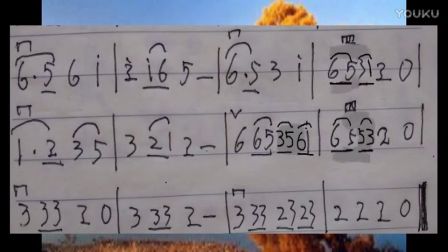 YOUKU
6·5 6 i | 2 i6 5 – | 6·5 3 i | 65 31 2 0 |
1·2 35 | 3 21 2 – | 6 65 35 61 | 65 53 2 0 |
3 33 2 0 | 3 33 2 – | 3 33 23 23 | 2 2 2 0 ‖